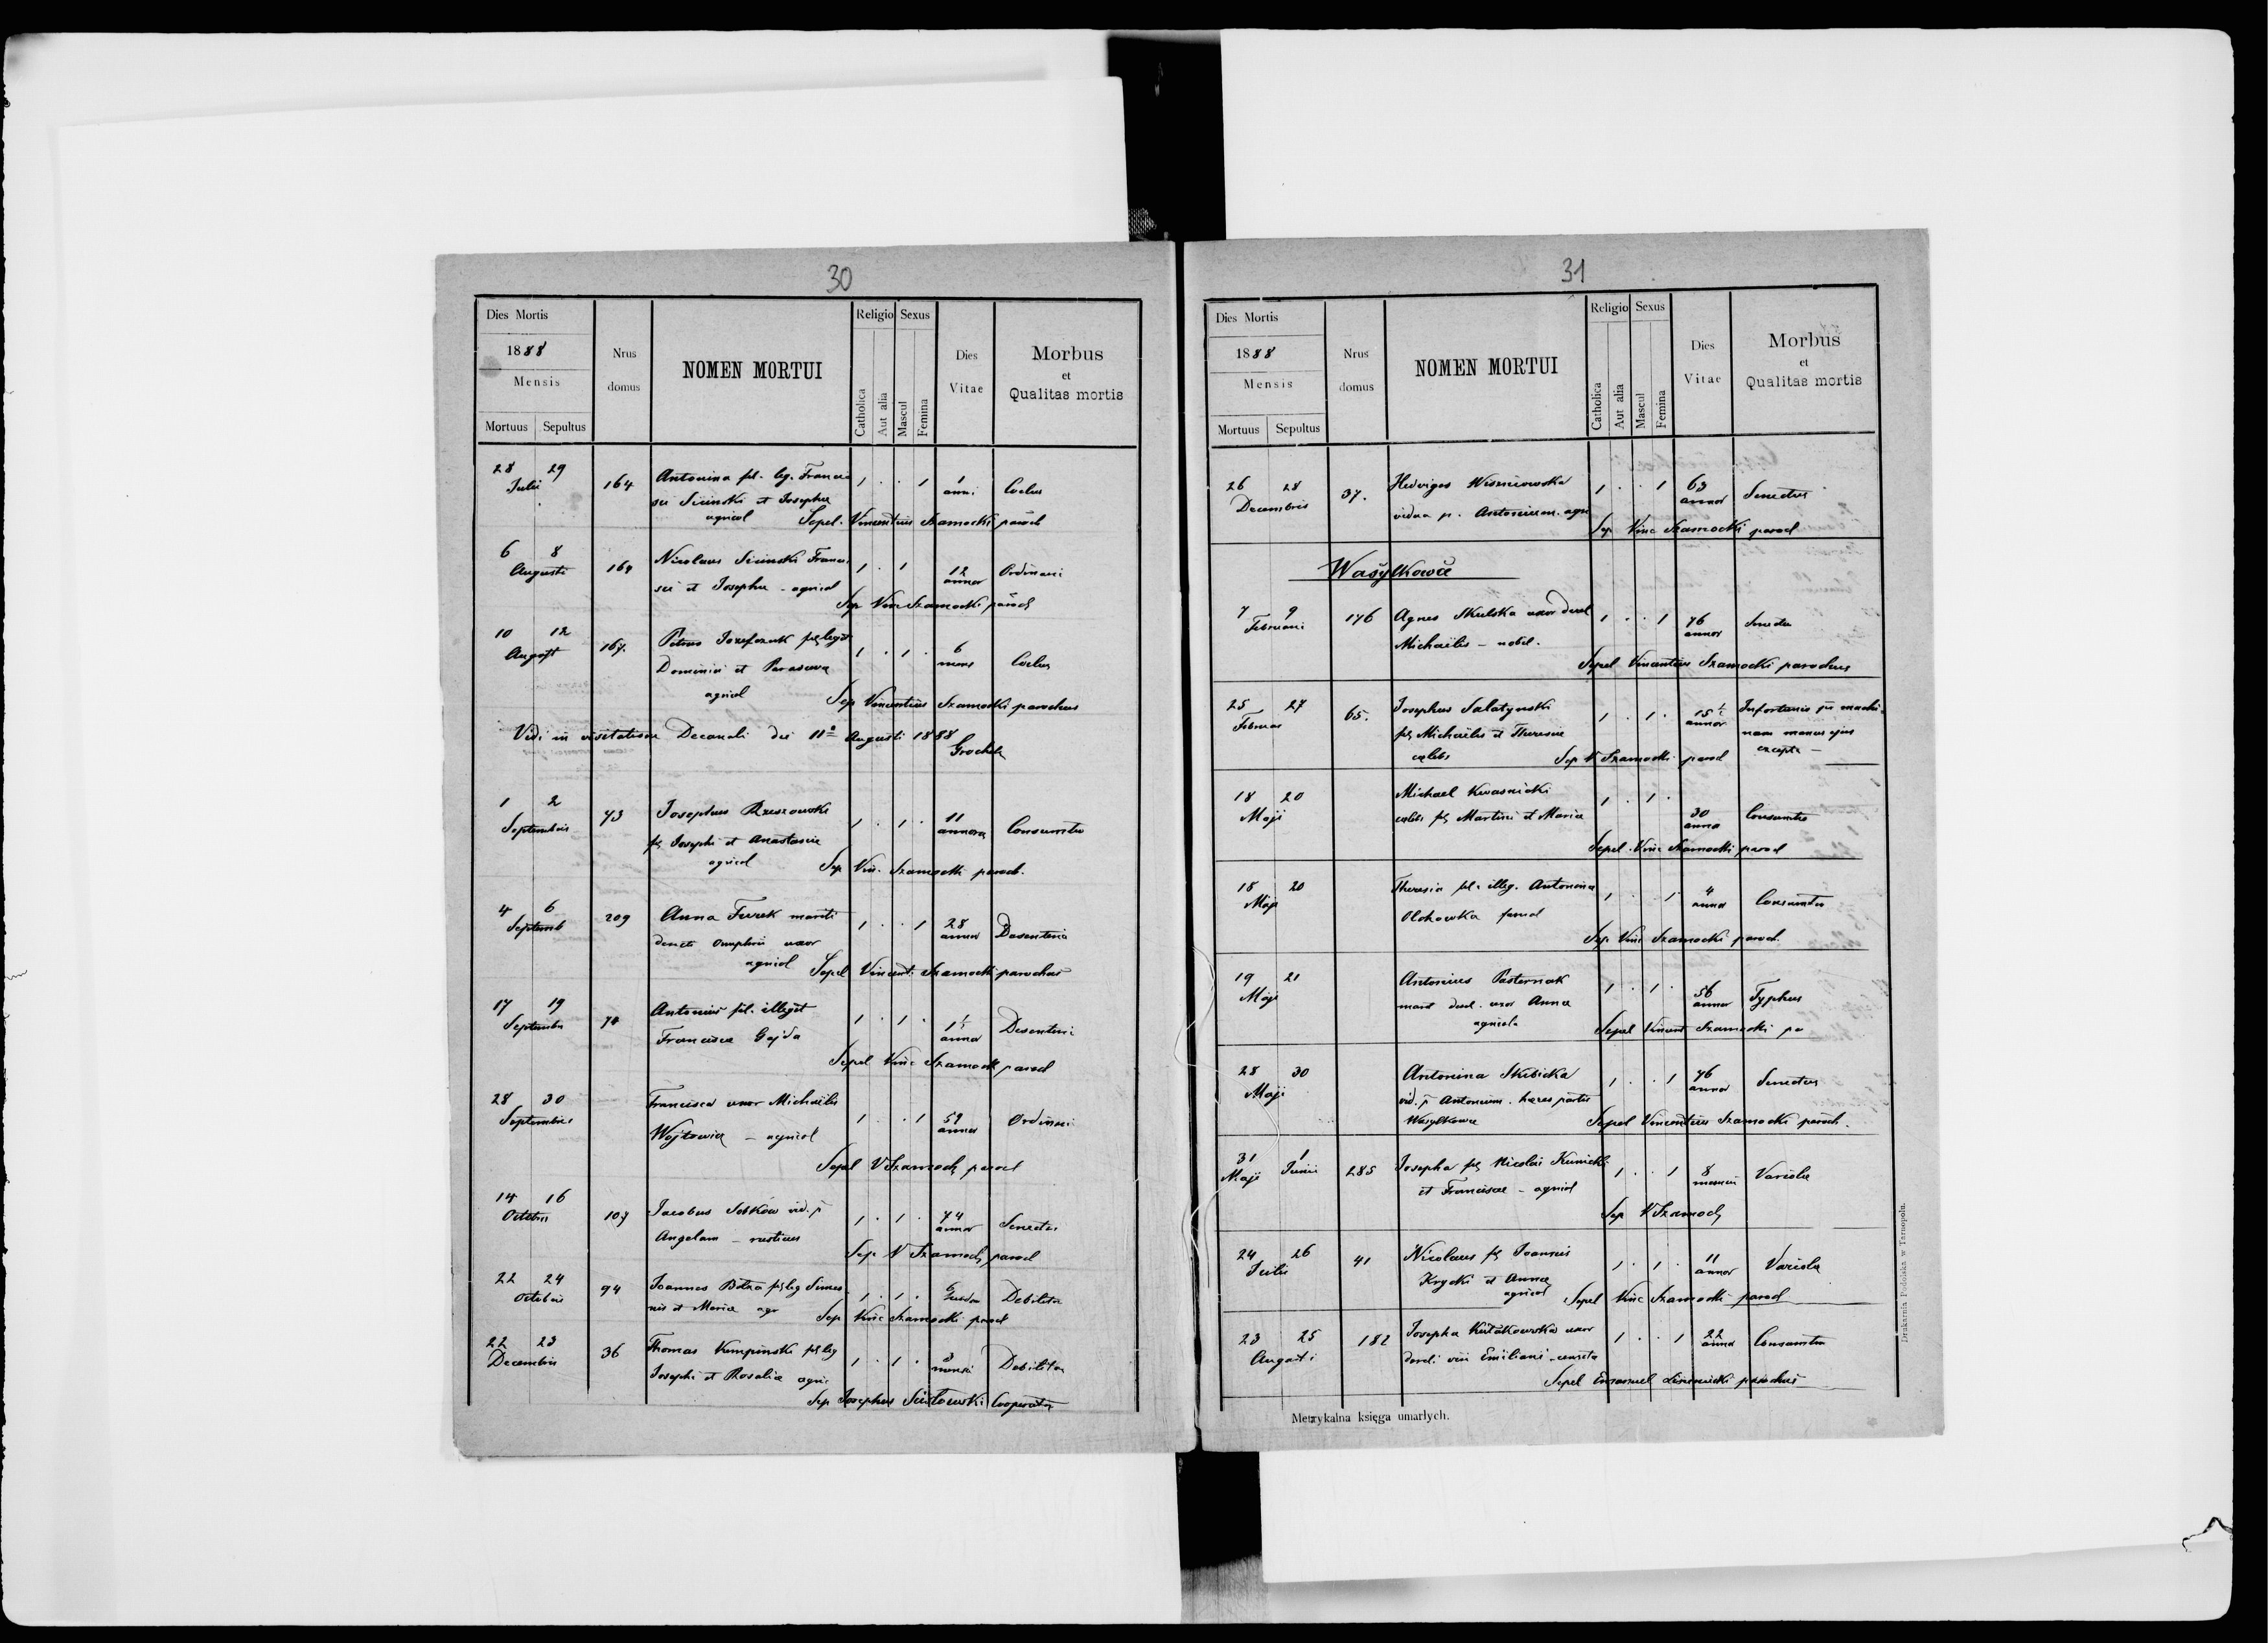 30
Dies Mortis
1888
Mensis
Mortuus Sepultus
Nrus
domus
NOMEN MORTUI
Religio Sexus
Catholica
Aut alia
Mascul
Femina
Dies
Vitae
Morbus
et
Qualitas mortis
28 29
Julii
164
Antonina fil. leg. Franci
sci Sicinski et Josephae
agricol
1 . . 1
1
anni
Sepel. Vincentius Szamocki paroch
6 8
Augusti
164
Nicolaus Sicinski Franci
sci et Josephae - agricol
1 . 1
12
annor
Ordinari
Sep Vinc Szamocki paroch
10 12
August
167.
Petrus Jozefczuk fil legit
Dominici et Parasceva
agricol
1 . 1 .
6
mens
Sep Vincentius Szamocki parochus
Vidi in visitatione Decanali die 11a Augusti 1888
1 2
Septembris
73
Josephus Rzeszowski
fil Josephi et Anastasiae
agricol
1 . 1 .
11
annorum
Consumtio
Sep Vin. Szamocki paroch.
4 6
Septemb
209
Anna Furek mariti
uxor
agricol
1 . . 1
28
annor
Desenteria
Sepel Vincent. Szamocki parochus
17 19
Septembr
74
Antonius fil. illegit
Franciscae Gajda
1 . 1 .
1½
annor
Desenteri
Sepel Vinc Szamocki paroch
28 30
Septembris
Francisca uxor Michaelis
Wojtowicz - agricol
1 . . 1
59
annor
Ordinari
Sepel V Szamock paroch
14 16
Octobris
107
Jacobus Sobków vid. p
Angelam - rusticus
1 . 1 .
74
annor
Senectus
Sep. V Szamock paroch
22 24
Octobris
94
Joannes fil leg Simeo
nis et Mariae agr
1 . 1 .
6
Debilitas
Sep Vinc Szamocki paroch
22 23
Decembris
36
Thomas Kempinski fil leg
Josephi et Rosalia agric
1 . 1 .
3
mensi
Debilitas
Sep Josephus Cooperator
31
Dies Mortis
1888
Mensis
Mortuus Sepultus
Nrus
domus
NOMEN MORTUI
Religio Sexus
Catholica
Aut alia
Mascul
Femina
Dies
Vitae
Morbus
et
Qualitas mortis
26 28
Decembris
37.
Hedviges Wiszniowska
vidua p. Antonium. agr
1 . . 1
63
annor
Senectus
Sep Vinc Szamocki paroch
Wasylkowce
7 9
Februari
176
Agnes Skulska uxor
Michaelis - nobil.
1 . . 1
76
annor
Senectus
Sepel Vincentius Szamocki parochus
25 27
Februar
65.
Josephus Salatynski
fil Michaelis et Theresiae
caelebs
1 . 1 .
15½
annor
manus ejus
Sep V Szamocki paroch
18 20
Maji
Michael Kwasnicki
caelebs fil Martini et Maria
1 . 1 .
30
annor
Consumtio
Sepel. Vinc Szamocki paroch
18 20
Maji
Theresia fil. illeg. Antonina
famul
1 . 1
4
annor
Consumtio
Sep. Vinc Szamocki paroch.
19 21
Maji
Antonius Pasternak
uxor Anna
agricola
1 . 1 .
56
annor
Typhus
Sepel Vincent Szamocki pa
28 30
Maji
Antonina Skibicka
vid. p Antonium. haeres partis
Wasylkowce
1 . . 1
76
annor
Senectus
Sepel Vincentius Szamocki paroch.
31 1
Maji Junii
285
Josepha fil Nicolai Kunicki
et Franciscae - agricol
1 . . 1
8
mensium
Variola
Sep V Szamock
24 26
Julii
41
Nicolaus fil Joannis
Krycki et Anna
agricol
1 . 1 .
11
annor
Variola
Sepel Vinc Szamocki paroch
23 25
Augusti
182
Josepha Kutakowska uxor
Emiliani
1 . . 1
22
annor
Consumtio
Sepel Emanuel parochus
Metrykalna księga umarłych.
Drukarnia Podolska w Tarnopolu.